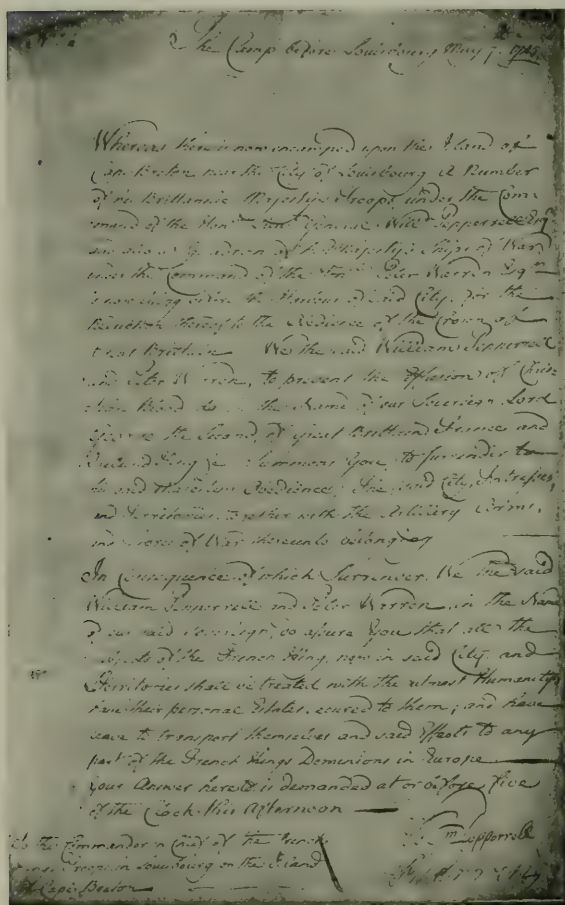 The Camp before Louisbourg May 7. 1745
Whereas there is now encamped upon the Island of
Cape Breton near the City of Louisbourg A Number
of his Brittannic Majesties Troops under the Com
mand of the Honble Genera Willm Pepperrell Esqr
and also a Squadron of his Majestys Ships of War
under the Command of the Honble Peter Warren Esqr
is now lying before the Harbour of said City, for the
Reduction thereof to the Obedience of the Crown of
Great Brittain We the said William Pepperrell
and Peter Warren, to prevent the Effusion of Chris
tian Blood do in the Name of our Sovereign Lord
George the Second, of Great Brittain France and
Ireland King &c Summons you, to surrender to
his said Obedience, the said City, Fortresses,
and Territories, together with the Artillery Arms,
and Stores of War thereunto belonging
In Consequence of which Surrender, We the said
William Pepperrell and Peter Warren, in the Name
of our said Sovereign, do assure you that all the
Subjects of the French King, now in said City and
Territories shall be treated with the utmost Humanity
have their personal Estates secured to them, and have
leave to transport themselves and said Effects to any
part of the French Kings Dominions in Europe
Your Answer hereto is demanded at or before five
of the Clock this Afternoon
To the Commander in Chief of the French
Kings Troops in Louisbourg on the Island
of Cape Breton
Wm Pepperrell